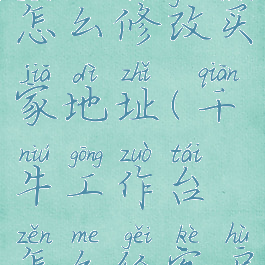 怎么修改买
jiā dì zhǐ qiān
家地址(千
niú gōng zuò tái
牛工作台
zěn me gěi kè hù
怎么给客户